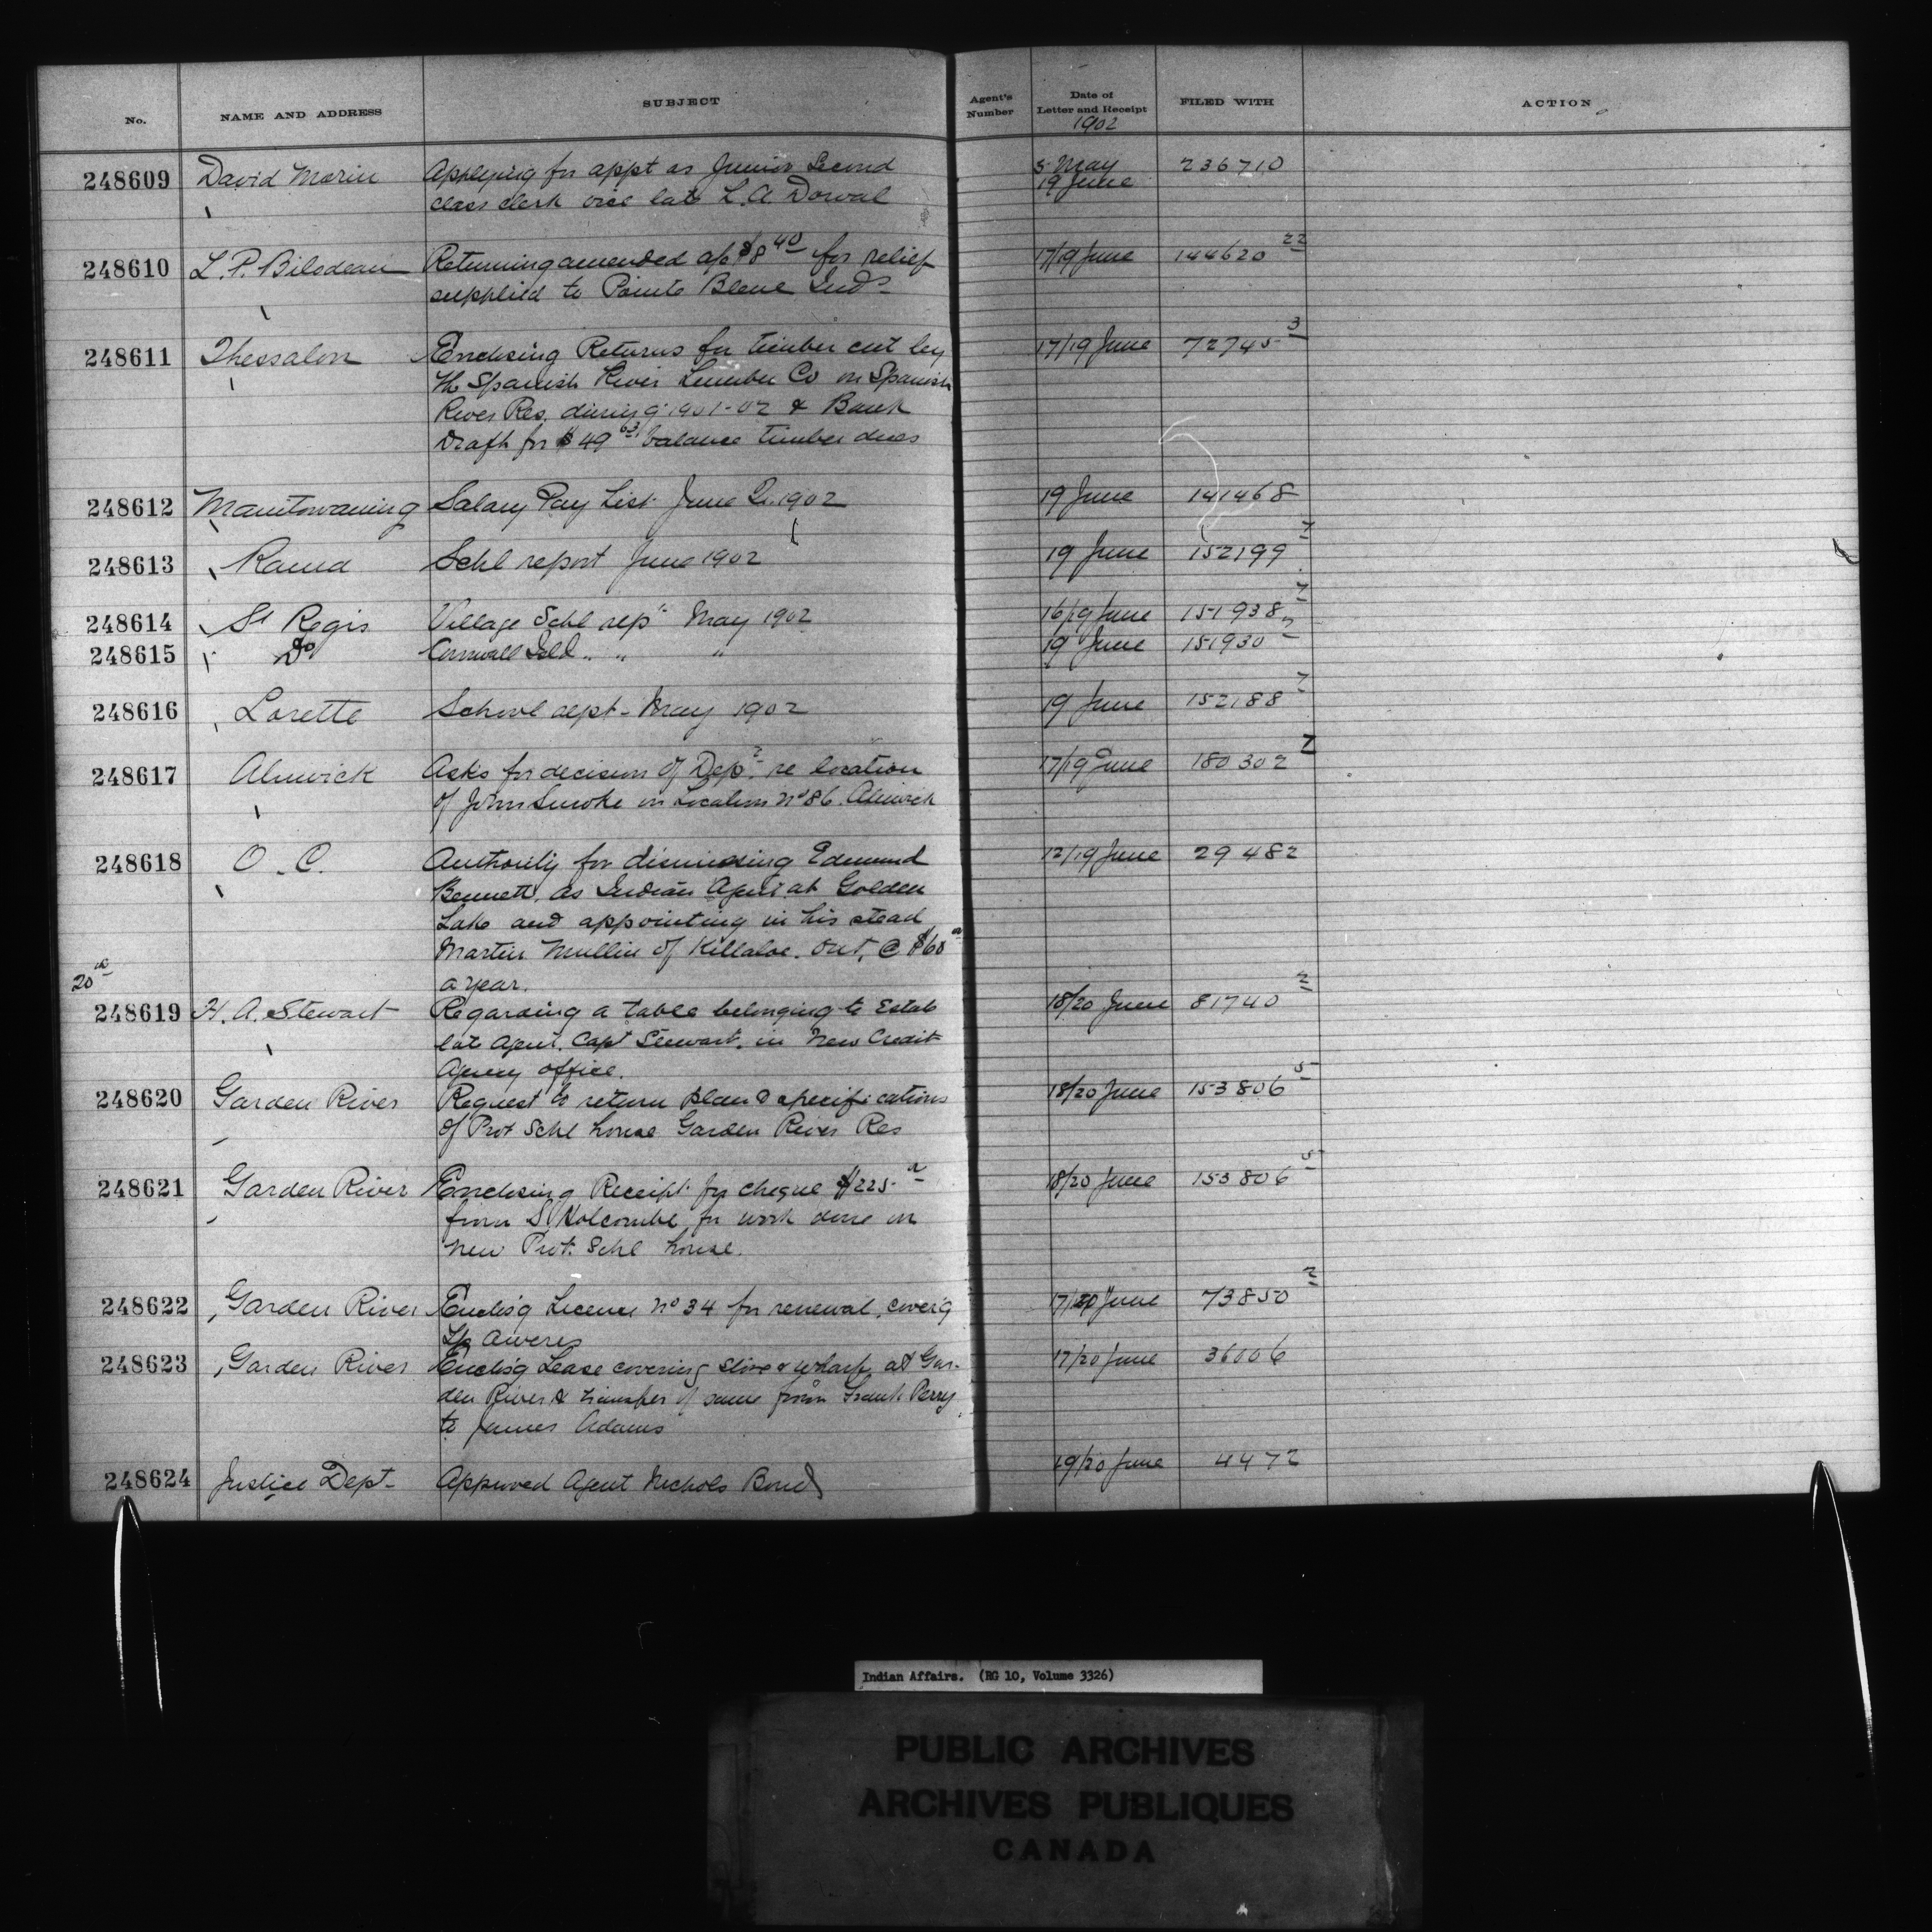 No. NAME AND ADDRESS SUBJECT Agent's Number Date of Letter and Receipt FILED WITH ACTION
1902
248609 David Morin Applying for appt as Junior Second 5 May 236710
class clerk vice late L. A. Dorval 19 June
248610 L. P. Bilodeau Returning amended a/c $8 40 for relief 17/19 June 144620 22
supplied to Pointe Bleue Inds
248611 Thessalon Enclosing Returns for timber cut by 17/19 June 72745 3
the Spanish River Lumber Co on Spanish
River Res. during 1901-02 & Bank
Draft for $49 63 balance timber dues
248612 Manitowaning Salary Pay List June Q. 1902 19 June 141468
248613 Rama Schl report June 1902 19 June 152199 7
248614 St Regis Village Schl rept May 1902 16/19 June 151938 7
248615 Do Cornwall Isld " " " 19 June 151930 2
248616 Lorette School rept - May 1902 19 June 152188 7
248617 Alnwick Asks for decision of Dept re location 17/19 June 180302 7
of John Smoke on Location No 86. Alnwick
248618 O. C. Authority for dismissing Edmund 12/19 June 29482
Bennett, as Indian Agent at Golden
Lake and appointing in his stead
Martin Mullin of Killaloe. Ont, @ $60
20th
a year.
248619 H. A. Stewart Regarding a table belonging to Estate 18/20 June 81740 2
late Agent. Capt Stewart. in New Credit
Agency office.
248620 Garden River Request to return plan & specifications 18/20 June 153806 5
of Prot Schl house Garden River Res
248621 Garden River Enclosing Receipt for cheque $225 18/20 June 153806 5
from S. Holcombe, for work done on
new Prot. Schl house.
248622 Garden River Enclos'g Licence No 34 for renewal, cover'g 17/20 June 73850 2
Tp Aweres
248623 Garden River Enclos'g Lease covering store & wharf at Gar- 17/20 June 36006
den River & transfer of same from Frank Perry
to James Adams
248624 Justice Dept- Approved Agent Nichols Bond 19/20 June 4472
Indian Affairs. (RG 10, Volume 3326)
PUBLIC ARCHIVES
ARCHIVES PUBLIQUES
CANADA